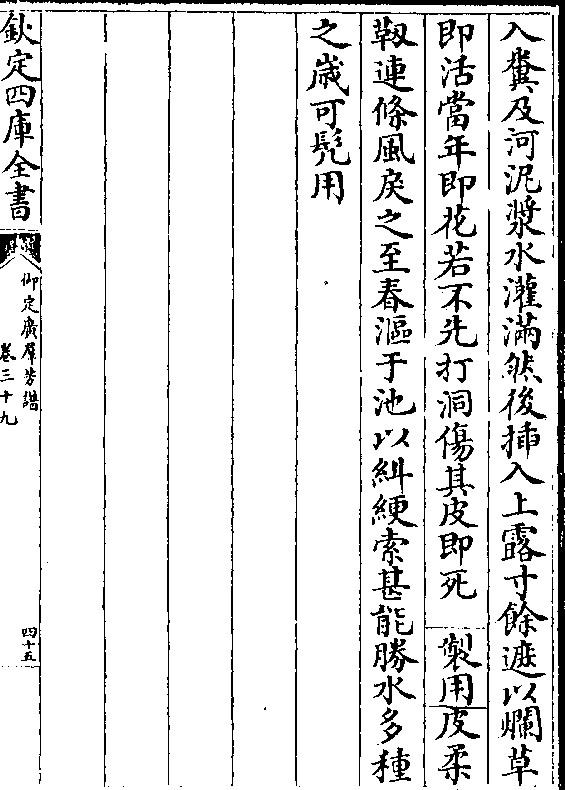 入糞及河泥漿水灌滿然後揷入上露寸餘遮以爛草
即活當年即花若不先打洞傷其皮即死 製用皮柔
靱連條風戾之至春漚于池以糾綆索甚能勝水多種
之歲可髡用
欽定四庫全書
御定廣羣芳譜
卷三十九
四十五